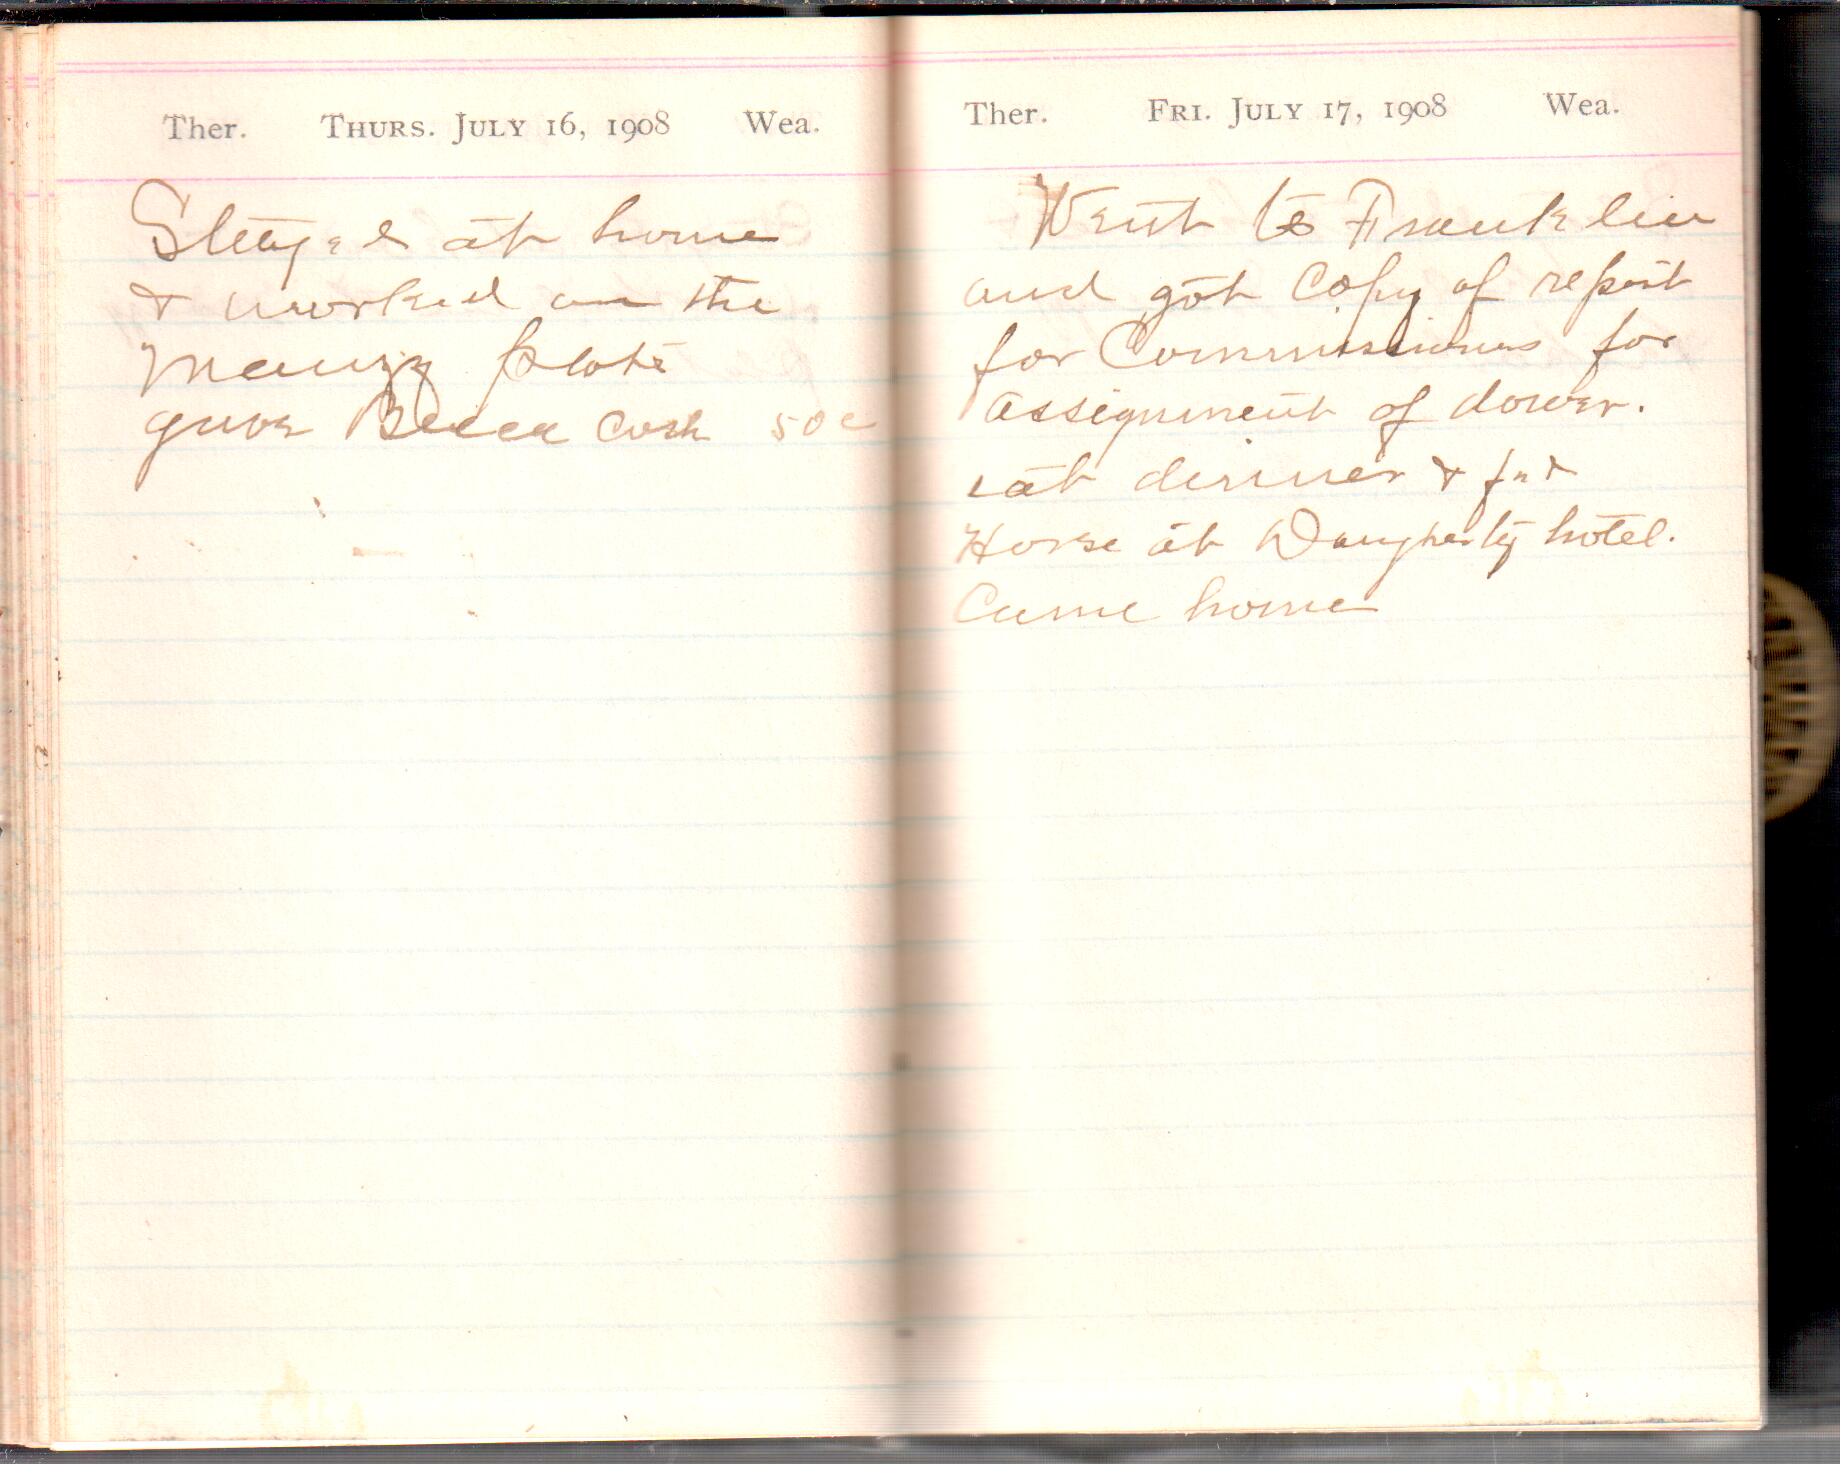 Ther. THURS. JULY 16, 1908 Wea.
Stayed at home
& worked on the
Mauzy plots
gave Becca cash 50c
Ther. FRI. JULY 17, 1908 Wea.
Went to Franklin
and got copy of report
for Commissioners for
assignment of dower.
eat dinner & fed
Horse at Daugherty hotel.
Came home